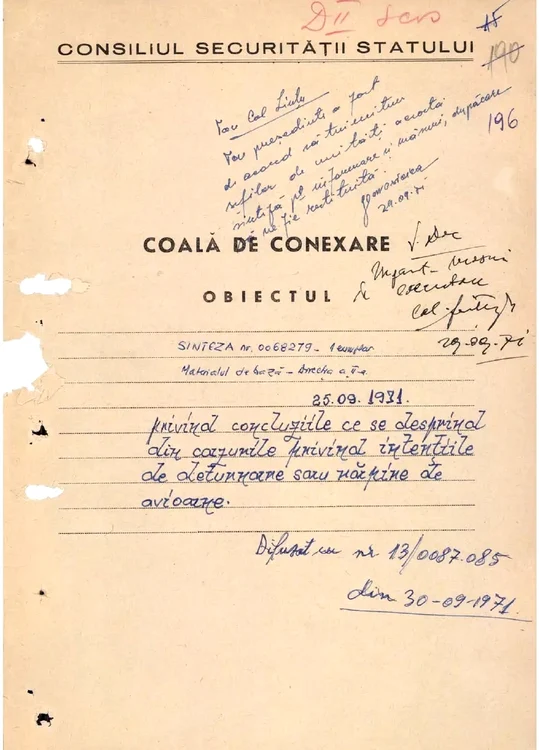 D II Secr
15
CONSILIUL SECURITĂȚII STATULUI
190
196
Tov Col
Tov președinte a fost
de acord să trimitem
șefilor de unități această
sinteză pt informare și măsuri, după care
să ne fie restituită.
29.09.71
COALĂ DE CONEXARE
OBIECTUL
Urgent
executare
Col.
29.09.71
SINTEZA nr. 0068279 - 1 exemplar
Materialul de bază - Direcția a II-a
25.09.1971.
privind concluziile ce se desprind
din cazurile privind intențiile
de deturnare sau răpire de
avioane.
Difuzat cu nr 13/0087.085
din 30-09-1971.